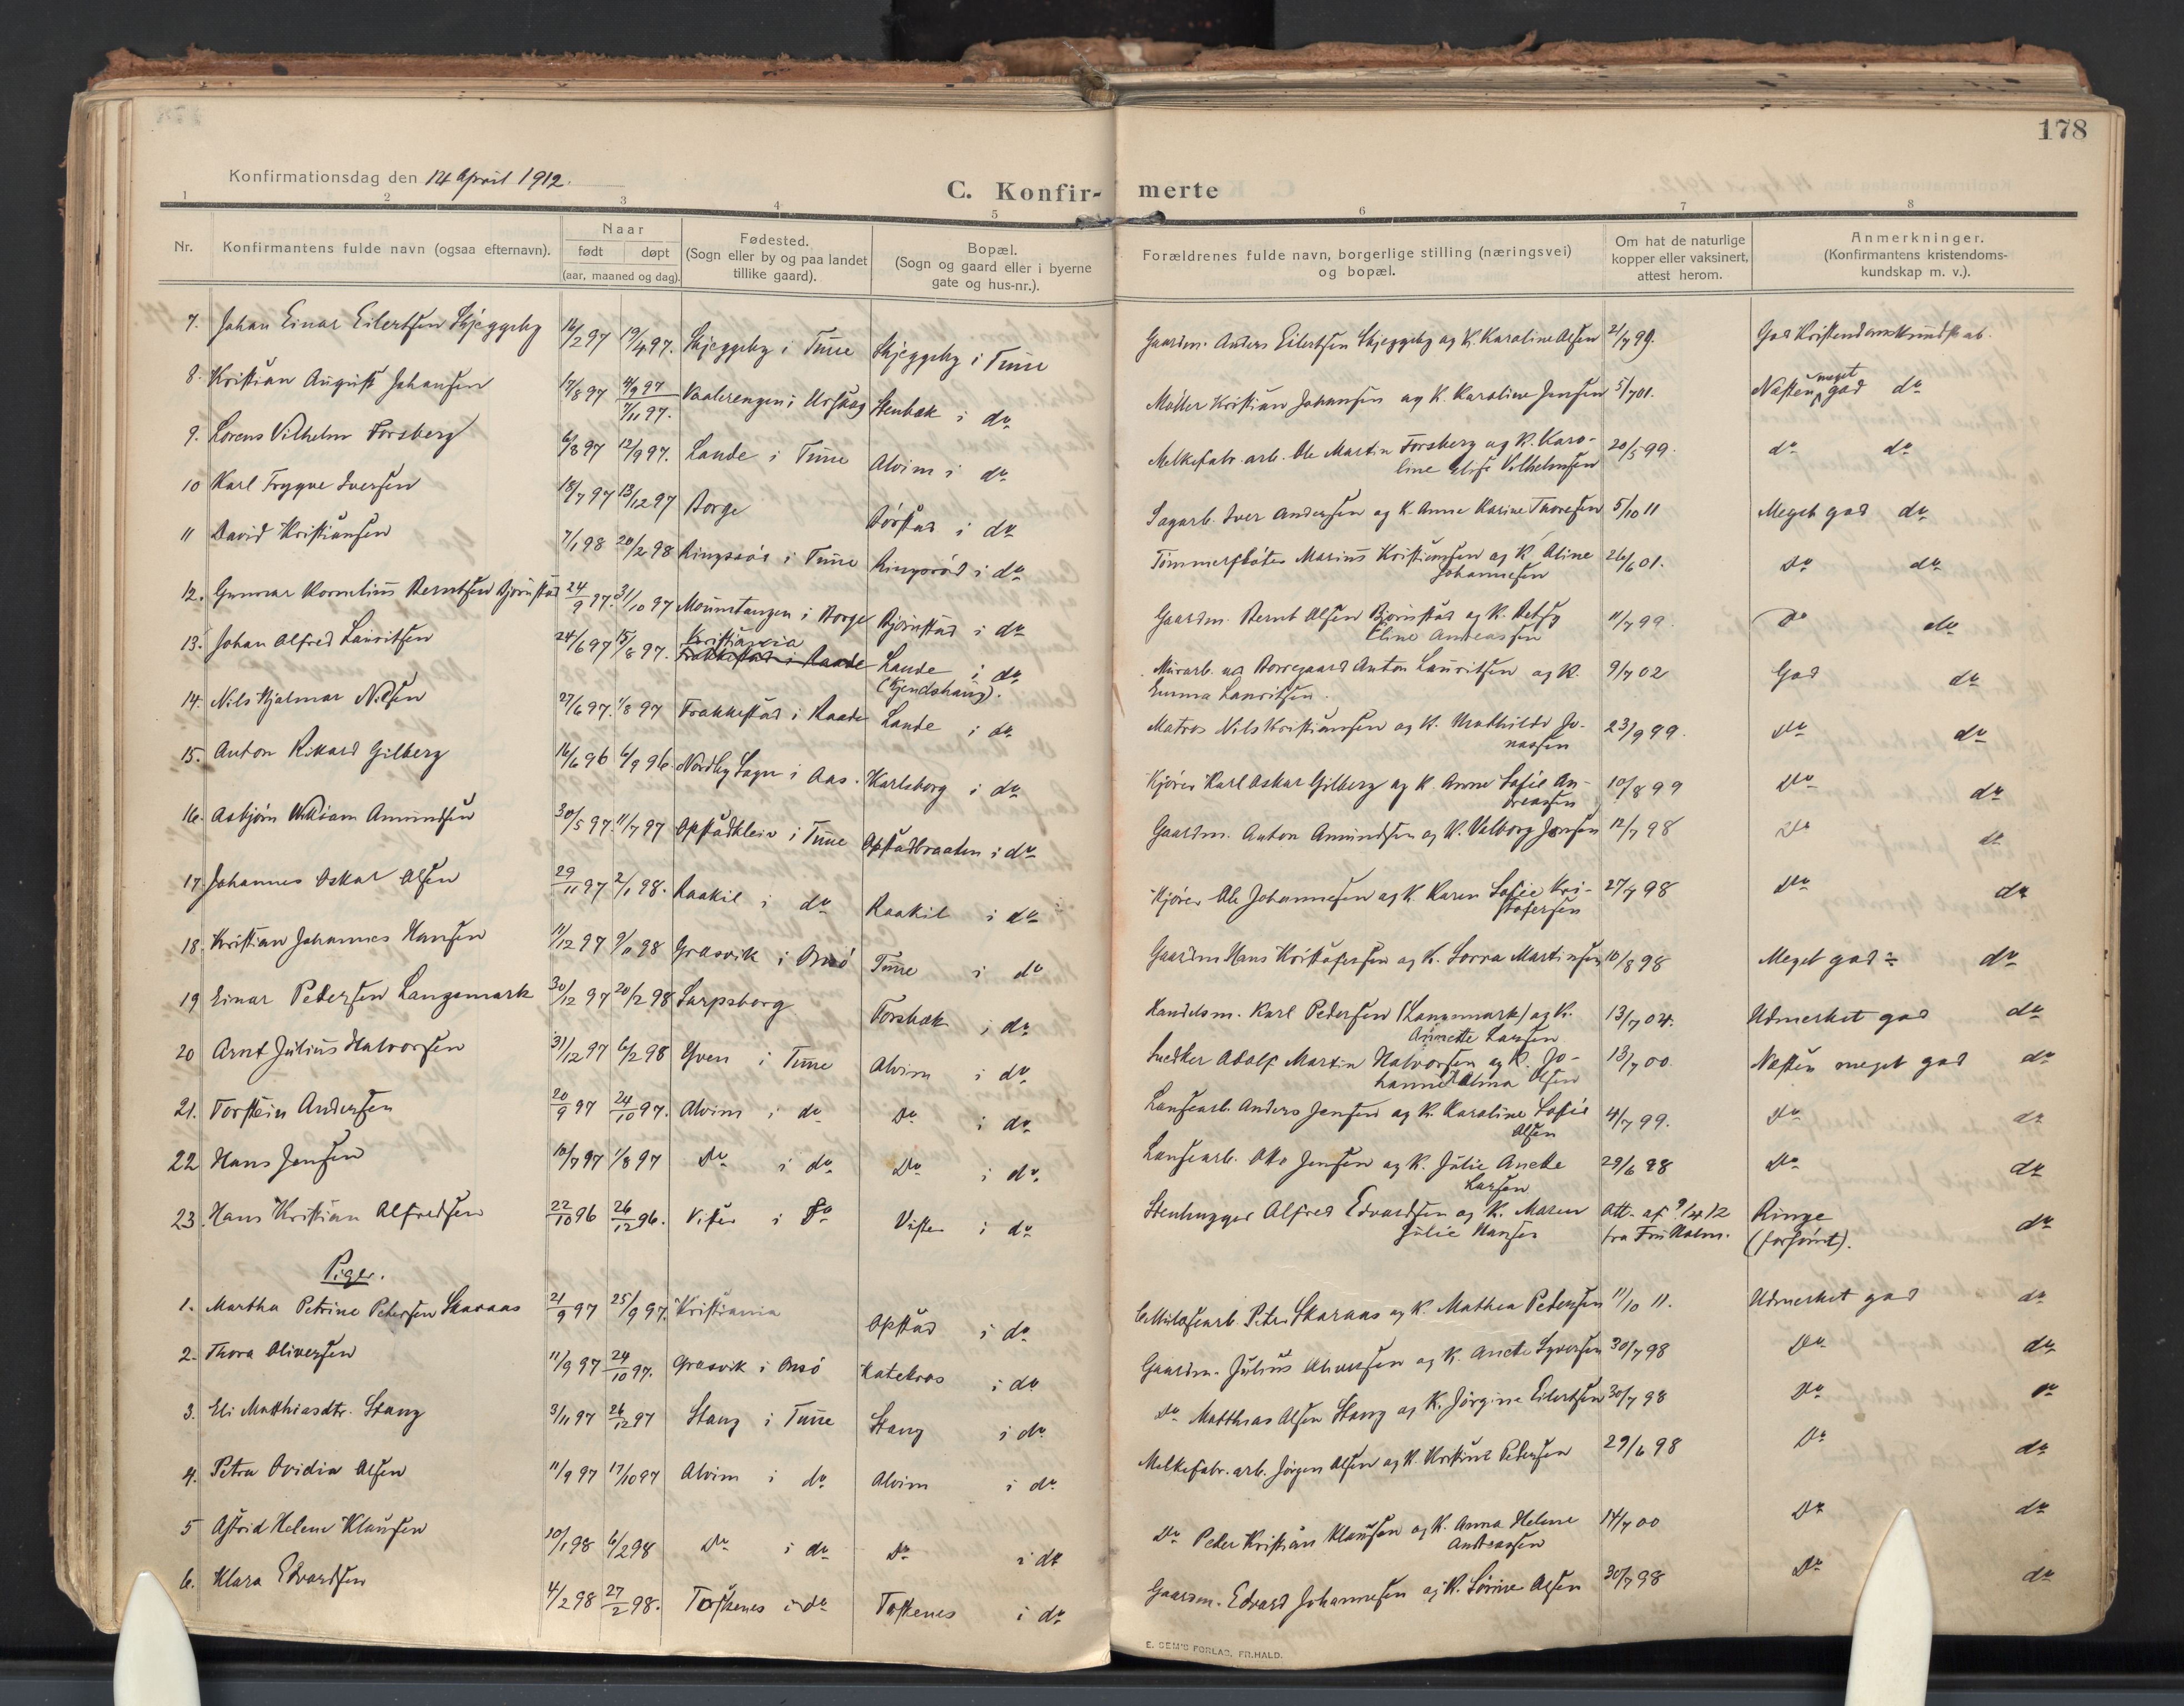 178
Konfirmationsdag den 14 April 1912.
C. Konfir- merte
1 2 3 4 5 6 7 8
Nr.
Konfirmantens fulde navn (ogsaa efternavn).
Naar
født døpt
(aar, maaned og dag).
Fødested.
(Sogn eller by og paa landet
tillike gaard).
Bopæl.
(Sogn og gaard eller i byerne
gate og hus-nr.).
Forældrenes fulde navn, borgerlige stilling (næringsvei)
og bopæl.
Om hat de naturlige
kopper eller vaksinert,
attest herom.
Anmerkninger.
(Konfirmantens kristendoms-
kundskap m. v.).
7. Johan Einar Eilertsen Skjeggeby 16/2 97 19/4 97. Skjeggeby i Tune Skjeggeby i Tune Gaardm. Anders Eilertsen Skjeggeby og K. Karoline Olsen 21/7 99. God Kristendomskundskab.
8. Kristian August Johansen 17/8 97 7/11 97. Vaalerengen i Urskog Stenbæk i do Møller Kristian Johansen og K. Karoline Jensen 5/7 01. Næsten meget god do
9. Lorens Vilhelm Forsberg 6/8 97 12/9 97. Lande i Tune Alvim i do Melkefabr. arb. Ole Martin Forsberg og K. Karo-
line Elise Vilhelmsen 20/5 99. do do
10 Karl Trygve Iversen 18/7 97 13/12 97 Borge Børstad i do Sagarb. Iver Andersen og K. Anne Karine Thoresen 5/10 11 Meget god do
11 David Kristiansen 7/1 98 20/2 98 Ringsrød i Tune Ringsrød i do Tømmerfløter Marius Kristiansen og K. Oline
Johannesen 26/6 01. Do do
12. Gunnar Kornelius Berntsen Bjørnstad 24/9 97. 31/10 97 Moumtangen i Borge Bjørnstad i do Gaardm. Bernt Olsen Bjørnstad og K. Betsy
Eline Andreassen 11/7 99. Do do
13. Johan Alfred Lauritsen 24/6 97 15/8 97. Kristiania
Trakkestad i Raade Lande i do
(Kjendshaug). Murarb. ved Borregaard Anton Lauritsen og K.
Emma Lauritsen. 9/7 02 God do
14. Nils Hjalmar Nilsen 27/6 97. 1/8 97 Trakkestad i Raade Lande i do Matros Nils Kristiansen og K. Mathilde Jo-
nassen 23/9 99. Do do
15. Anton Rikard Gilberg 16/6 96 6/9 96. Nordby Sogn i Aas. Karlsborg i do Kjører Karl Oskar Gilberg og K. Anne Sofie An-
dreassen 10/8 99 Do do
16. Asbjørn William Amundsen 30/5 97. 11/7 97 Opstadkleiv i Tune Opstadbraaten i do Gaardm. Anton Amundsen og K. Valborg Jensen 12/7 98 Do do
17. Johannes Oskar Olsen 29/11 97 2/1 98. Raakil i do Raakil i do Kjører Ole Johannesen og K. Karen Sofie Kri-
stofersen 27/7 98 Do do
18. Kristian Johannes Hansen 11/12 97 9/1 98 Græsvik i Onsø Tune i do Gaardm Hans Kristofersen og K. Lorra Martinsen 10/8 98 Meget god ÷ do
19 Einar Petersen Langemark 30/12 97 20/2 98 Sarpsborg Forsbæk i do Handelsm. Karl Petersen (Langemark) og K.
Annette Larsen 13/7 04. Udmerket god do
20 Arnt Julius Halvorsen 31/12 97 6/2 98 Yven i Tune Alvim i do Snedker Adolf Martin Halvorsen og K. Jo-
hanne Alma Olsen 13/7 00 Næsten meget god do
21. Torstein Andersen 20/9 97 24/10 97. Alvim i do Do i do Lænsearb. Anders Jensen og K. Karoline Sofie
Olsen 4/7 99. Do do
22 Hans Jensen 10/7 97 1/8 97 Do i do Do i do Lænsearb. Otto Jensen og K. Julie Anette
Larsen 29/6 98 Do do
23. Hans Kristian Alfredsen 22/10 96 26/12 96. Vister i Do Vister i do Stenhugger Alfred Edvardsen og K. Maren
Julie Hansen Att. af 9/4 12
fra Frú Holm. Ringe
(forsømt). do
Piger.
1. Martha Petrine Petersen Skaraas 21/9 97 25/9 97. Kristiania Opstad i do Cellulosearb. Peter Skaraas og K. Mathea Petersen 11/10 11. Udmerket god do
2. Thora Oliversen 11/9 97 24/10 97. Græsvik i Onsø Katekros i do Gaardm. Julius Oliversen og K. Anette Syversen 30/7 98 Do do
3. Eli Matthiasdtr. Stang 3/11 97 26/12 97 Stang i Tune Stang i do Do Matthias Olsen Stang og K. Jørgine Eilertsen 30/7 98 Do do
4. Petra Ovidia Olsen 11/9 97 17/10 97 Alvim i do Alvim i do Melkefabr. arb. Jørgen Olsen og K. Kristine Petersen 29/6 98 Do do
5 Astrid Helene Klausen 10/1 98 6/2 98 Do i do Do i do Do Peder Kristian Klausen og K. Anna Helene
Andreassen 14/7 00 Do do
6. Klara Edvardsen 4/2 98 27/2 98. Toskenes i do Toskenes i do Gaardm. Edvard Johannesen og K. Sørine Olsen 30/7 98 Do do
E. SEM'S FORLAG, FR.HALD.